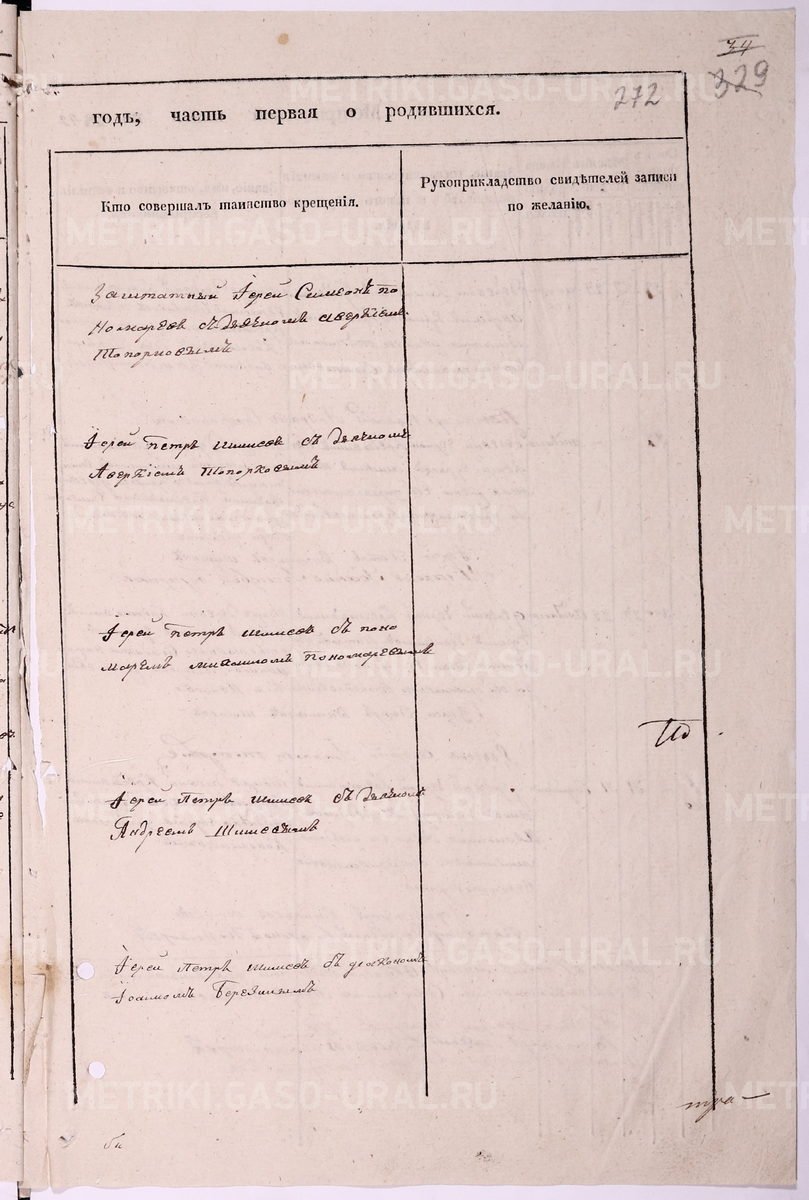 34
329
272
годъ, часть первая о родившихся.
Кто совершалъ таинство крещенія.
Рукоприкладство свидѣтелей записи
по желанію.
Заштатный Іерей Симеонъ по
номаревъ съ дьячкомъ Аверкіемъ
Топорковымъ
Іерей Петръ Шишевъ съ дьячкомъ
Аверкіемъ Топорковымъ
Іерей Петръ Шишевъ съ поно
маремъ Пономаревымъ
Іерей Петръ Шишевъ съ дьячкомъ
Андреемъ Шишевымъ
Іерей Петръ Шишевъ съ діакономъ
Іоанномъ Березинымъ
METRIKI.GASO-URAL.RU